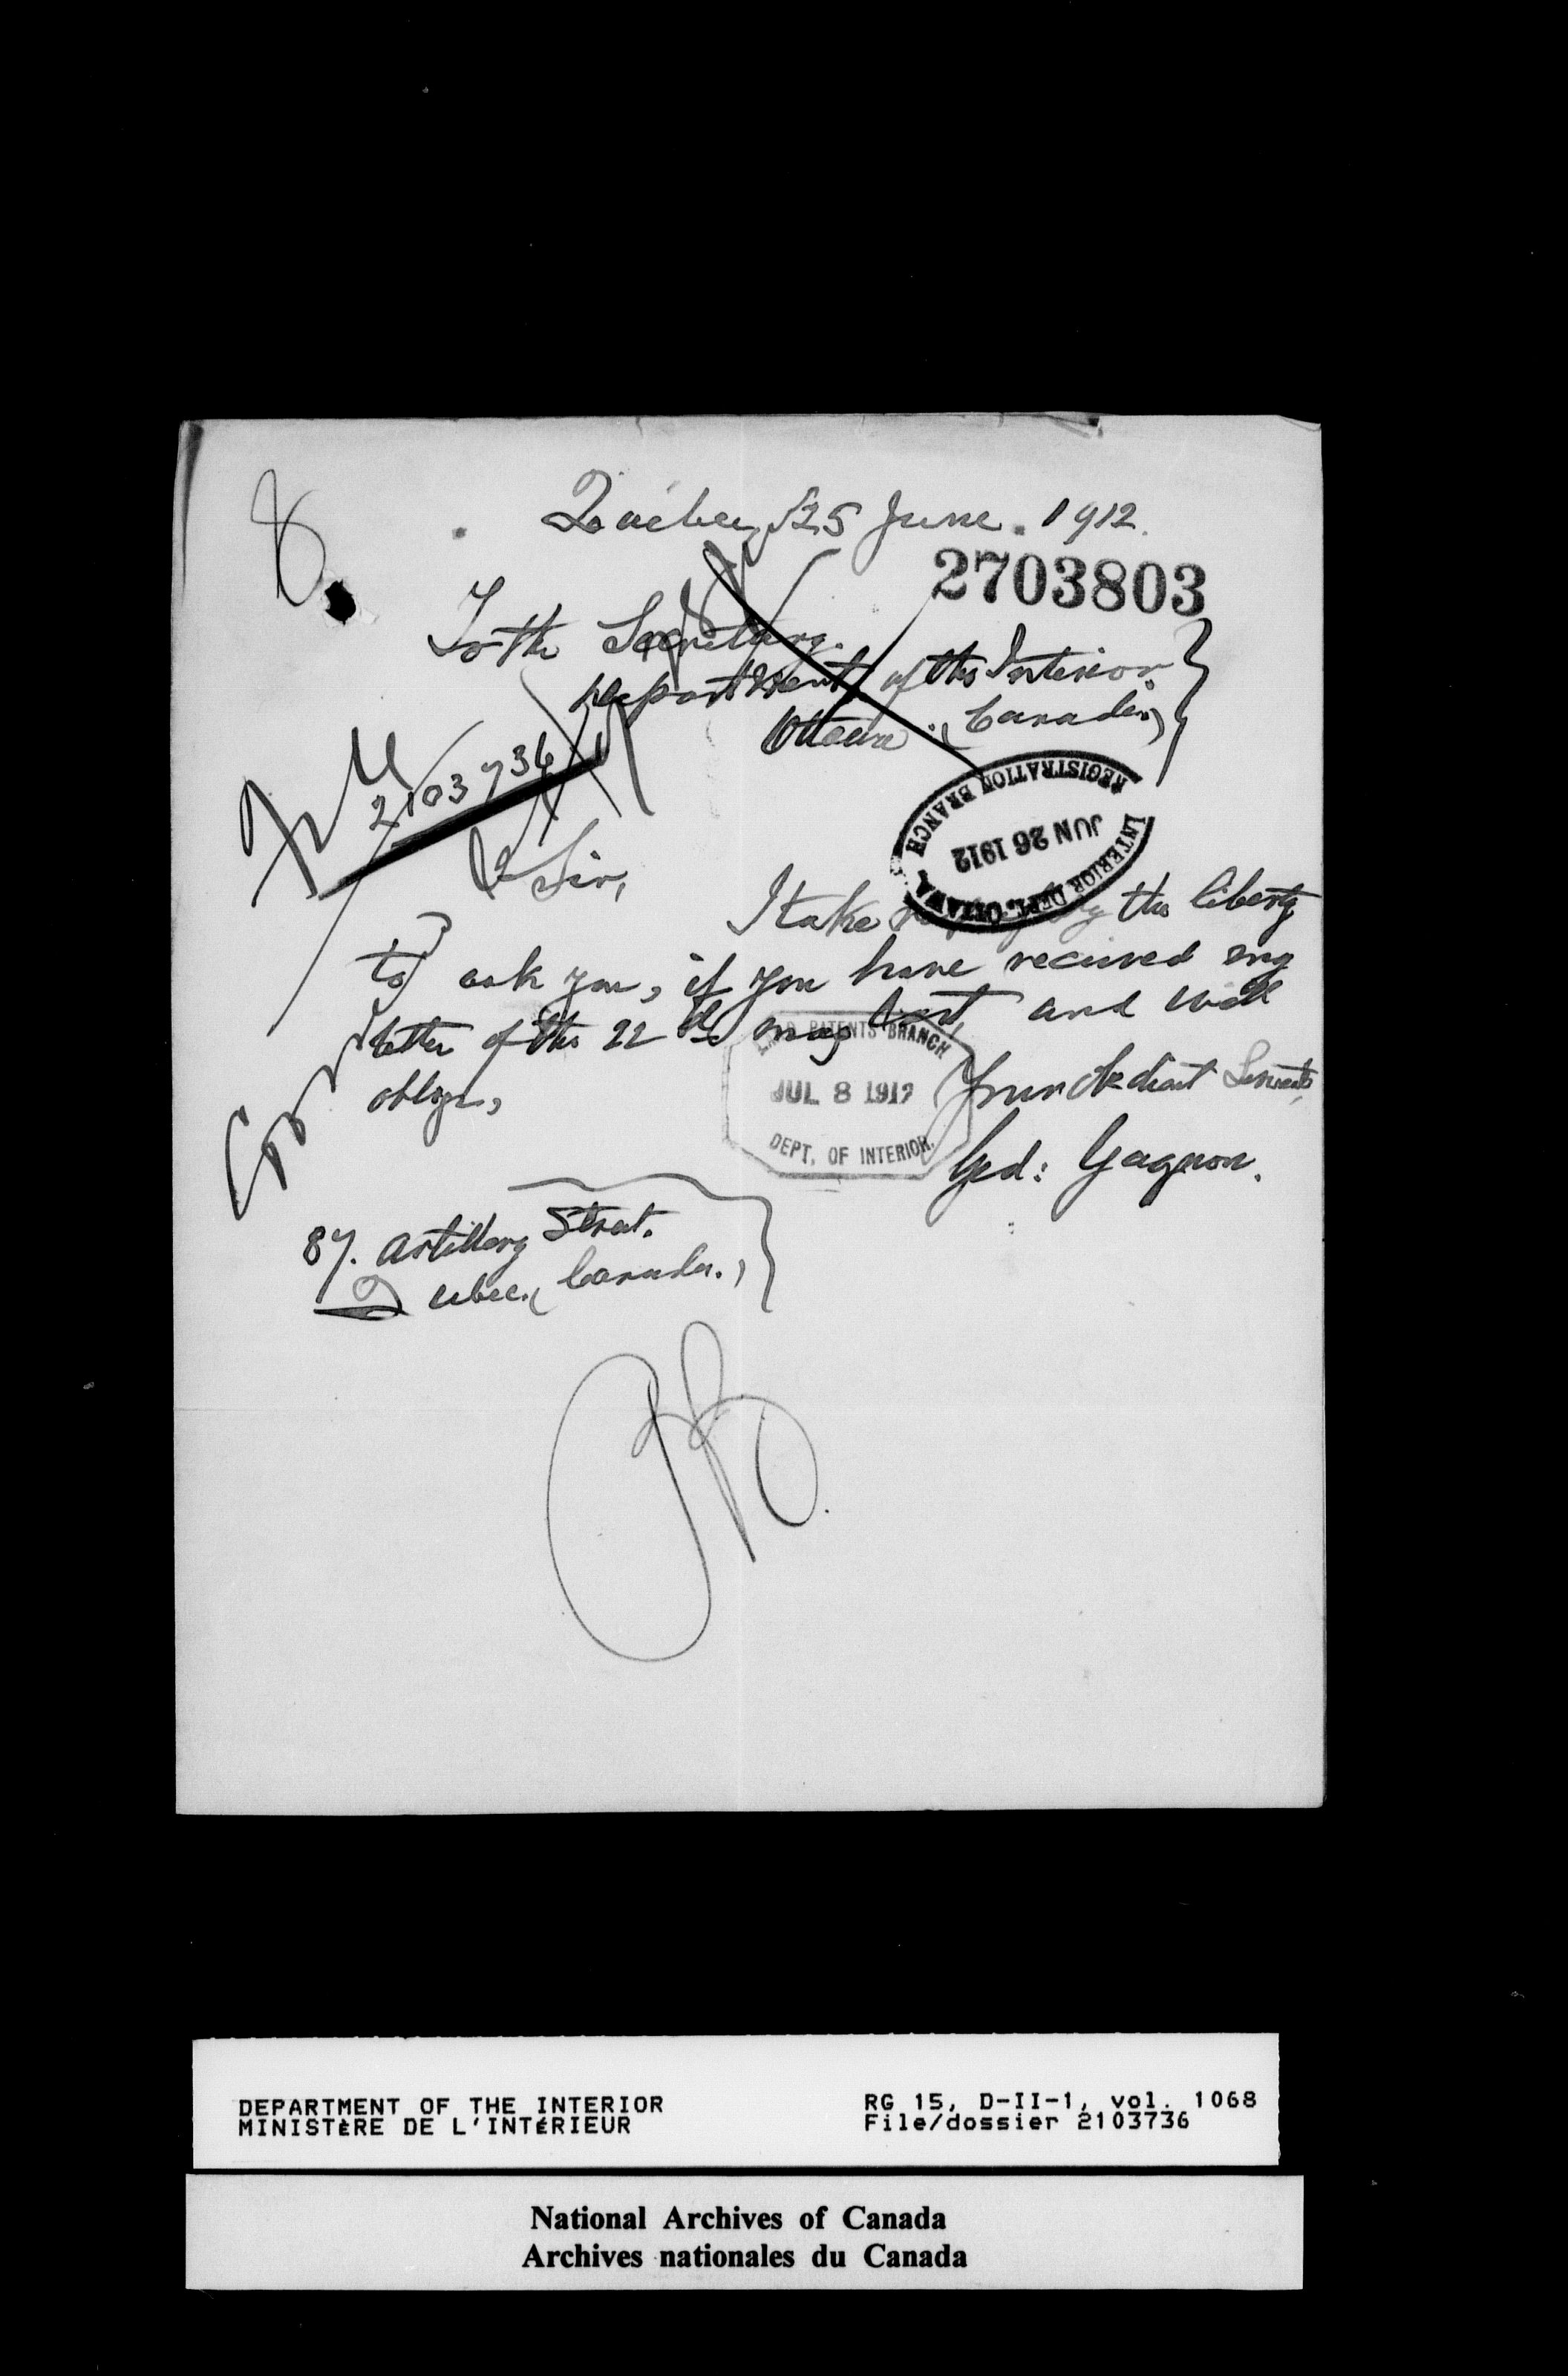 Quebec, 25 June. 1912.
2703803
To the Secretary.
Department of the Interior.
Ottawa. (Canada)
2103736
REGISTRATION BRANCH
JUN 26 1912
INTERIOR DEPT. OTTAWA
Sir,
I take the liberty
to ask you, if you have received my
letter of the 22 may last and will
oblige,
LAND PATENTS BRANCH
JUL 8 1912
DEPT. OF INTERIOR.
Your Obedient Servant,
Ged: Gagnon.
87. Artillery Street.
Quebec. (Canada.)
DEPARTMENT OF THE INTERIOR
MINISTÈRE DE L'INTÉRIEUR
RG 15, D-II-1, vol. 1068
File/dossier 2103736
National Archives of Canada
Archives nationales du Canada